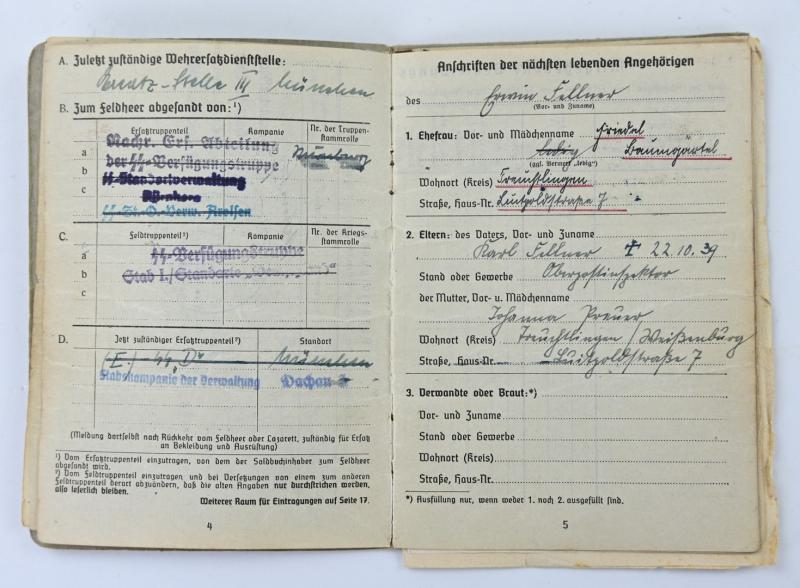 A. Zuletzt zuständige Wehrersatzdienststelle:
Ersatz-Stelle III München
B. Zum Feldheer abgesandt von:¹)
Ersatztruppenteil Kompanie Nr. der Truppen-
stammrolle
a Nachr. Ers. Abteilung
b der SS-Verfügungstruppe Nürnberg
SS-Standortverwaltung
c Nürnberg
SS-St.O.-Verw. Arolsen
C. Feldtruppenteil²) Kompanie Nr. der Kriegs-
stammrolle
a SS-Verfügungstruppe
b Stab I./Standarte
c
D. Jetzt zuständiger Ersatztruppenteil²) Standort
(E.) - SS „D" München
Stabskompanie der Verwaltung Dachau
(Meldung dortselbst nach Rückkehr vom Feldheer oder Lazarett, zuständig für Ersatz
an Bekleidung und Ausrüstung)
¹) Vom Ersatztruppenteil einzutragen, von dem der Soldbuchinhaber zum Feldheer
abgesandt wird.
²) Vom Feldtruppenteil einzutragen und bei Versetzungen von einem zum anderen
Feldtruppenteil derart abzuändern, daß die alten Angaben nur durchstrichen werden,
also leserlich bleiben.
Weiterer Raum für Eintragungen auf Seite 17.
4
Anschriften der nächsten lebenden Angehörigen
des Erwin Fellner
(Vor- und Zuname)
1. Ehefrau: Vor- und Mädchenname Friedel
ledig Baumgärtel
(ggf. Vermerk „ledig")
Wohnort (Kreis) Treuchtlingen
Straße, Haus-Nr. Luitpoldstraße 7
2. Eltern: des Vaters, Vor- und Zuname
Karl Fellner † 22.10.39
Stand oder Gewerbe Oberpostinspektor
der Mutter, Vor- u. Mädchenname
Johanna Preuer
Wohnort (Kreis) Treuchtlingen/Weißenburg
Straße, Haus-Nr. Luitpoldstraße 7
3. Verwandte oder Braut:*)
Vor- und Zuname
Stand oder Gewerbe
Wohnort (Kreis)
Straße, Haus-Nr.
*) Ausfüllung nur, wenn weder 1. noch 2. ausgefüllt sind.
5